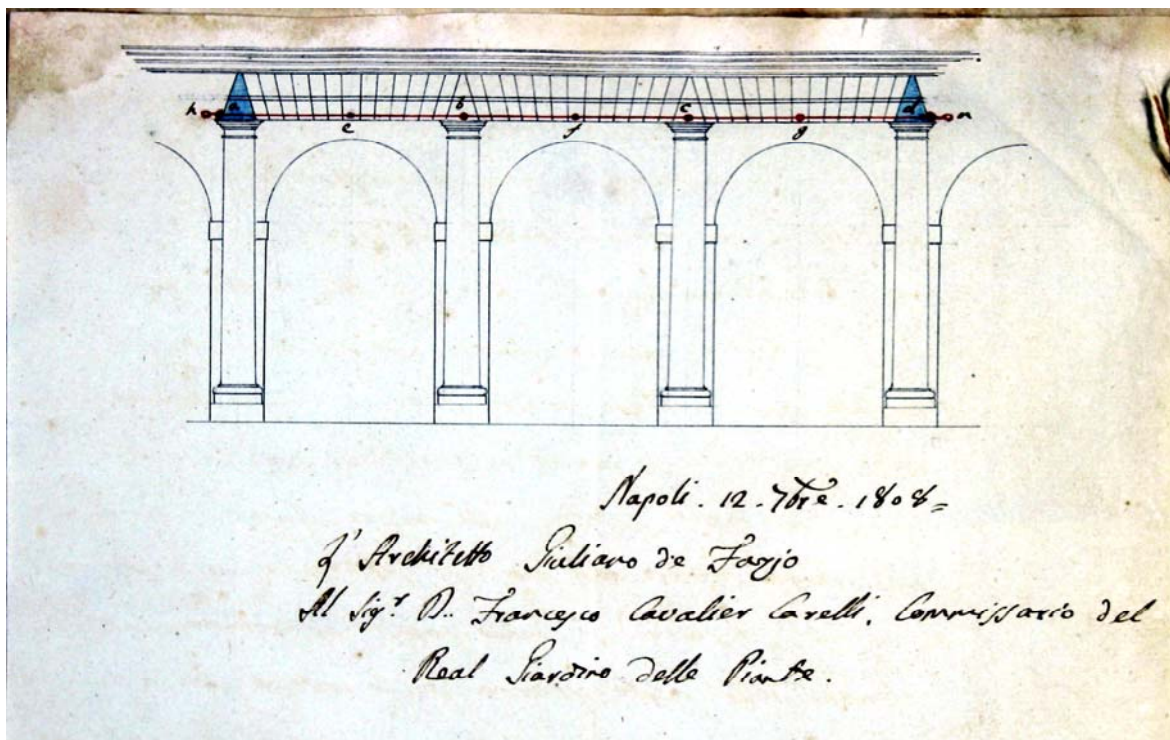 h a b c d
e f g
Napoli. 12. 7bre. 1808=
L'Architetto Giuliano de Fazjo
Al Sigr D.. Francesco Cavalier Carelli, Commissario del
Real Giardino delle Piante.